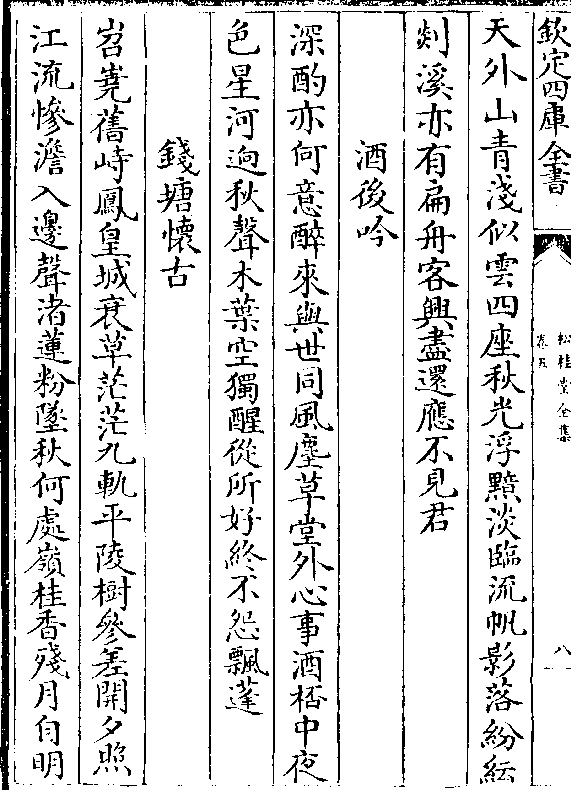 欽定四庫全書
松桂堂全集
卷五
八
天外山青淺似雲四座秋光浮黯淡臨流帆影落紛紜
剡溪亦有扁舟客興盡還應不見君
酒後吟
深酌亦何意醉來與世同風塵草堂外心事酒桮中夜
色星河逈秋聲木葉空獨醒從所好終不怨飄蓬
錢塘懷古
岧嶤舊峙鳳皇城衰草茫茫九軌平陵樹參差開夕照
江流慘澹入邊聲渚蓮粉墜秋何處嶺桂香殘月自明